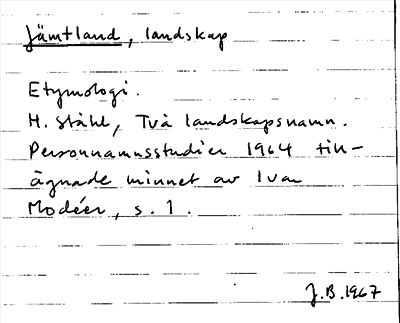 Jämtland, landskap
Etymologi.
H. Ståhl, Två landskapsnamn.
Personnamnsstudier 1964 till-
ägnade minnet av Ivar
Modéer, s. 1.
J.B. 1967